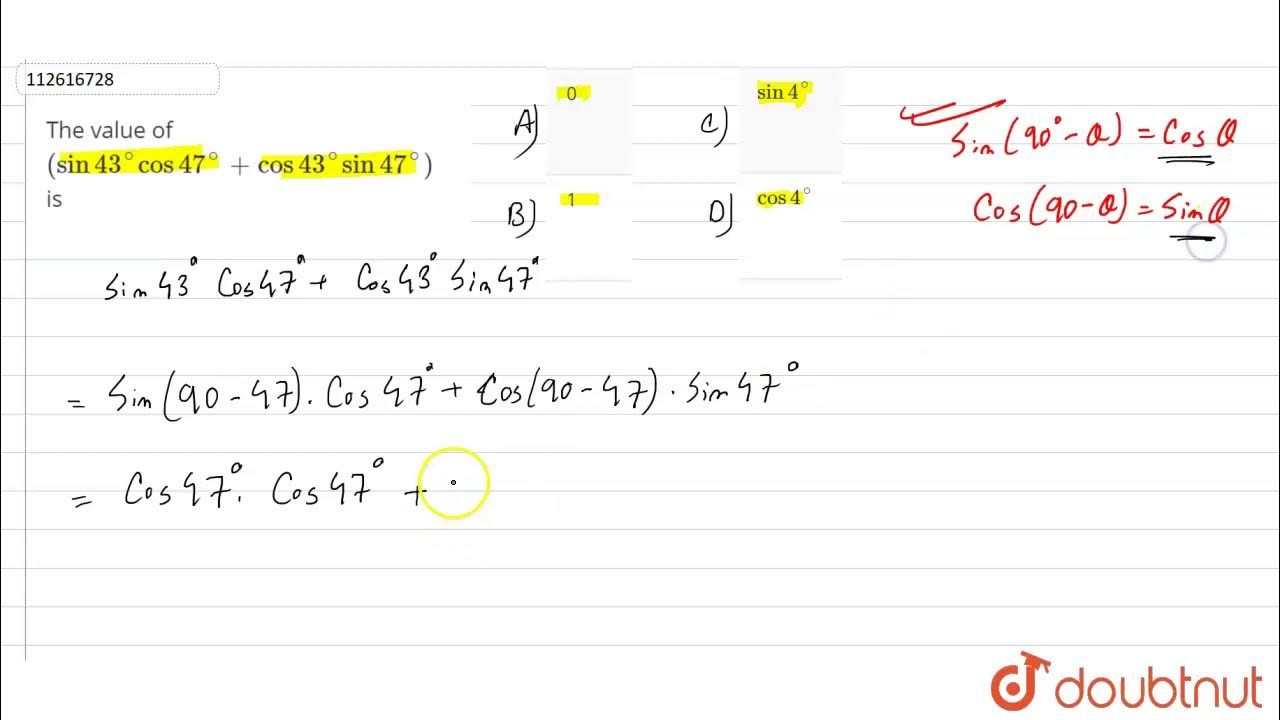 112616728
The value of
(sin 43° cos 47° + cos 43° sin 47°)
is
A) 0
B) 1
C) sin 4°
D) cos 4°
Sin(90° - θ) = Cos θ
Cos(90 - θ) = Sin θ
Sin 43° Cos 47° + Cos 43° Sin 47°
= Sin(90 - 47). Cos 47° + Cos(90 - 47). Sin 47°
= Cos 47°. Cos 47° +
doubtnut